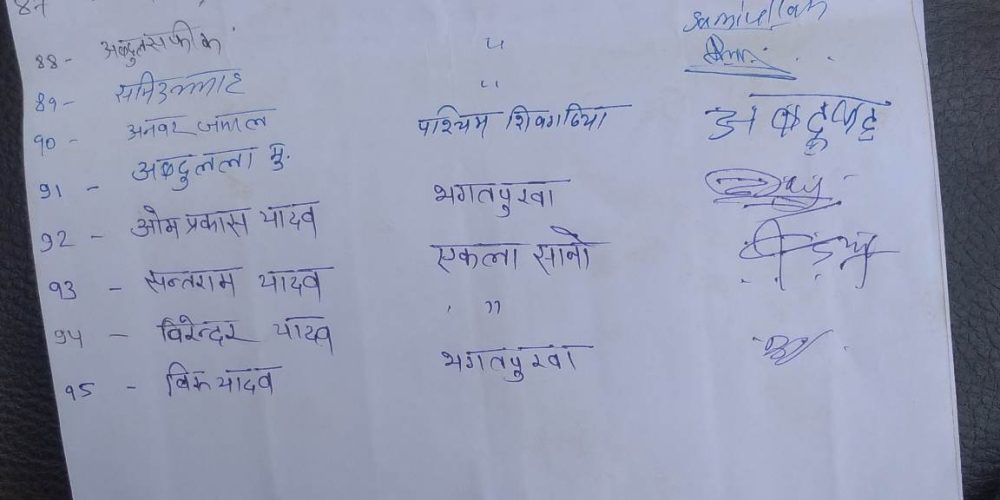 87
88- अब्दुलसफीक " Samiullah
89- समिउल्लाह "
90- अनवर जमाल पश्चिम शिवगढिया
91 - अब्दुलला मु.
92 - ओम प्रकास यादव भगतपुरवा
93 - सन्तराम यादव एकला सानो
94 - विरेन्दर यादव , "
95 - विरु यादव भगतपुरवा